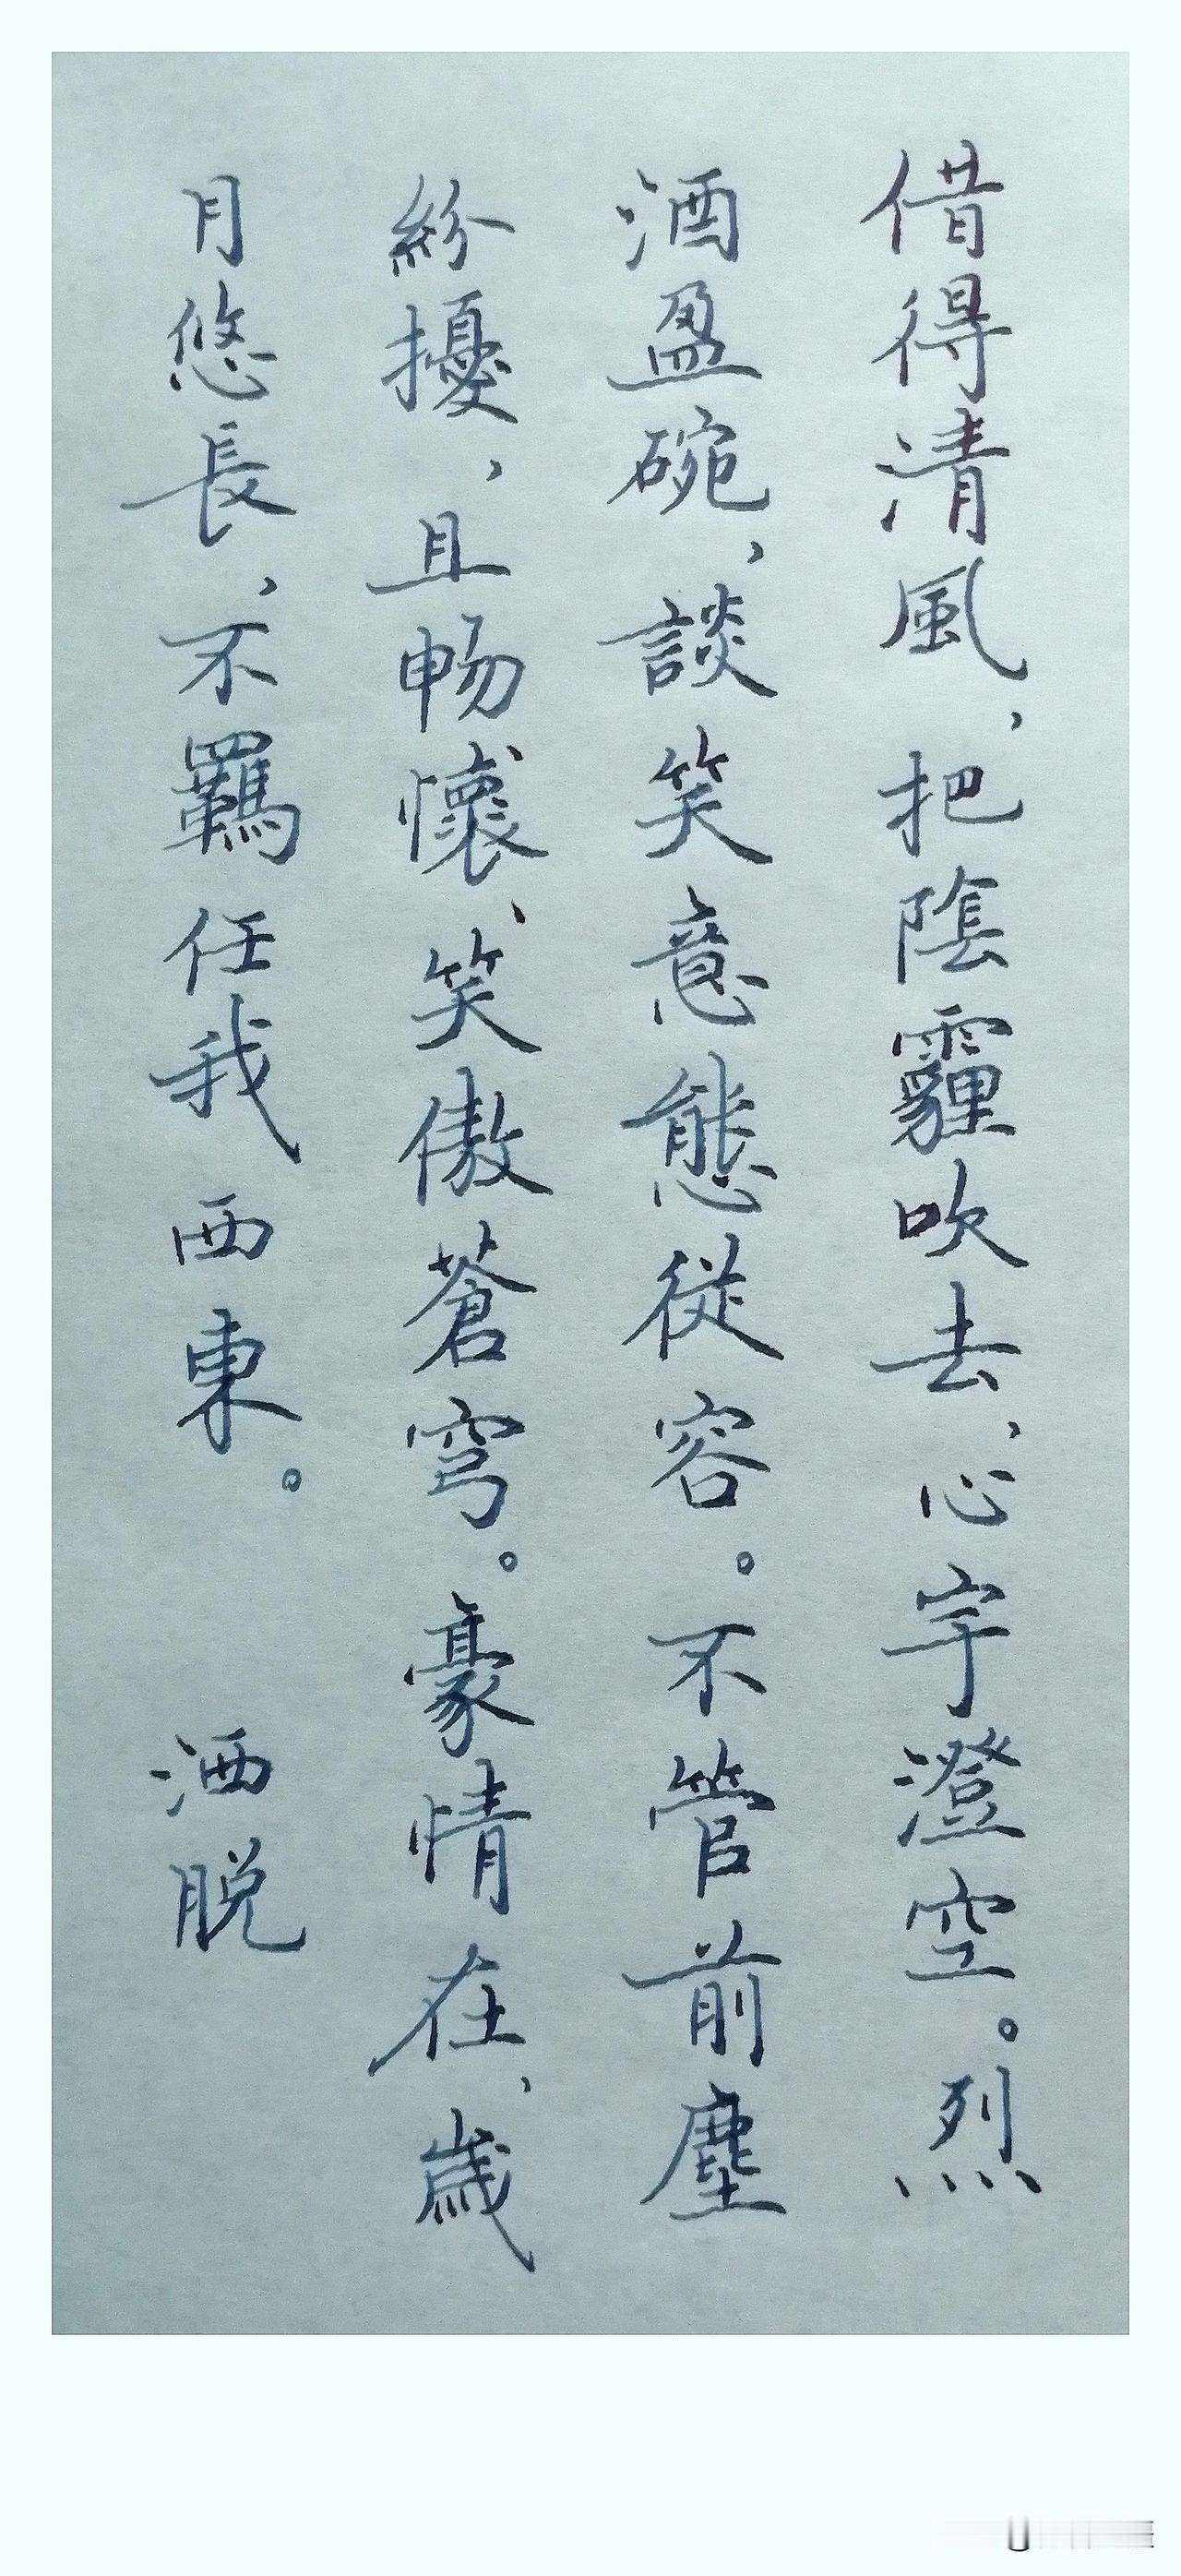 借得清風，把陰霾吹去，心宇澄空。烈
酒盈碗，談笑意態從容。不管前塵
紛擾，且畅懷，笑傲蒼穹。豪情在，歲
月悠長，不羈任我西東。 洒脱